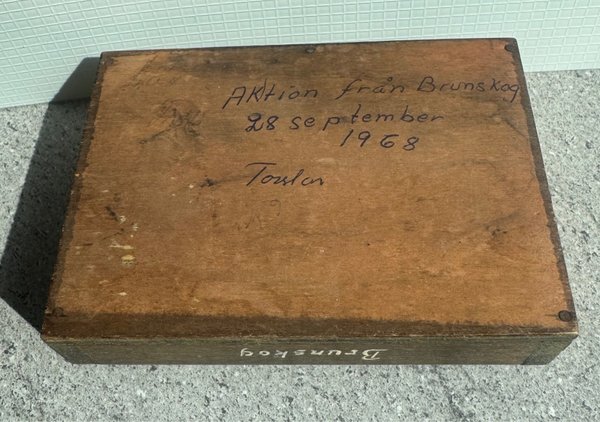 AKtion från Brunskog
28 september
1968
Brunskog